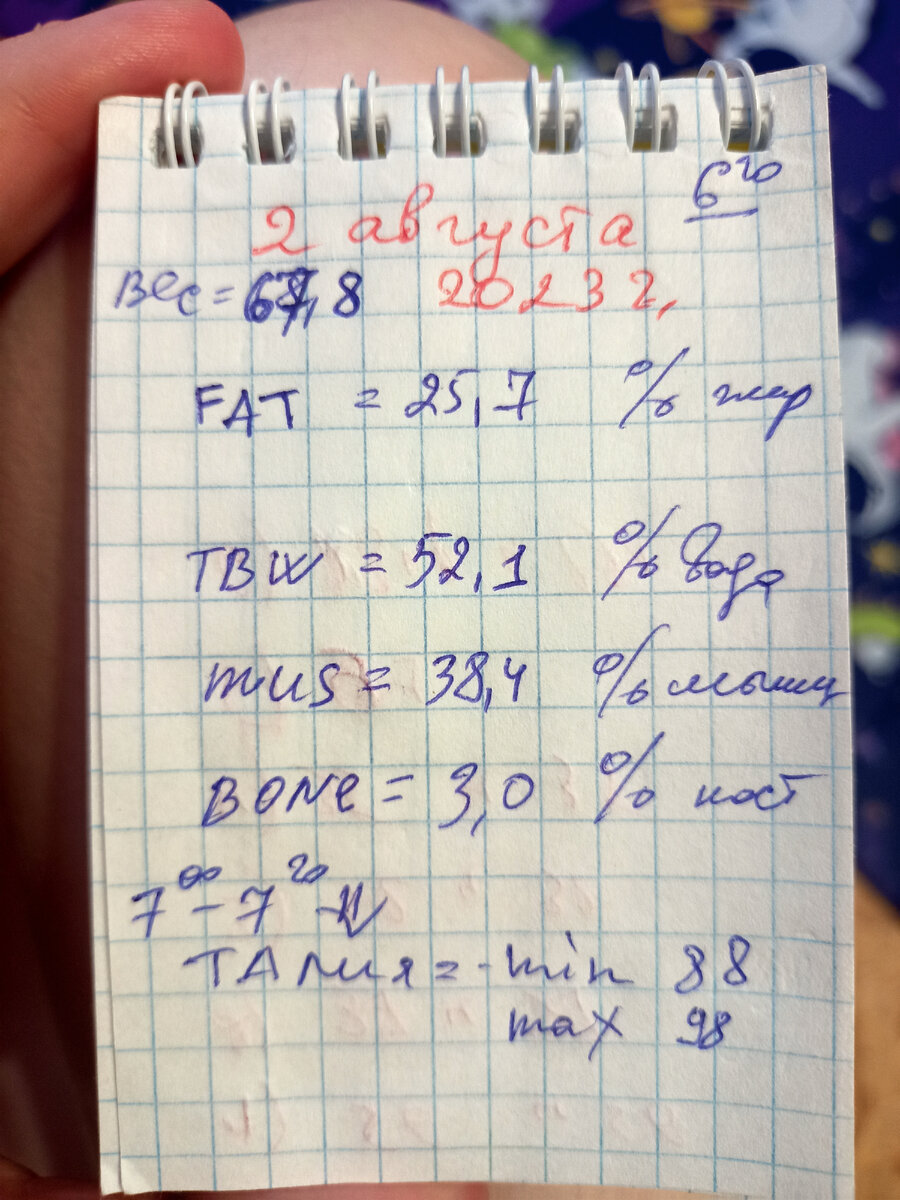 6²⁰
2 августа
Вес = 67,8 2023 г.
FAT = 25,7 % жир
TBW = 52,1 % вода
mus = 38,4 % мышц
BONe = 3,0 % кост
7⁰⁰ - 7²⁰
ТАлия = min 88
max 98